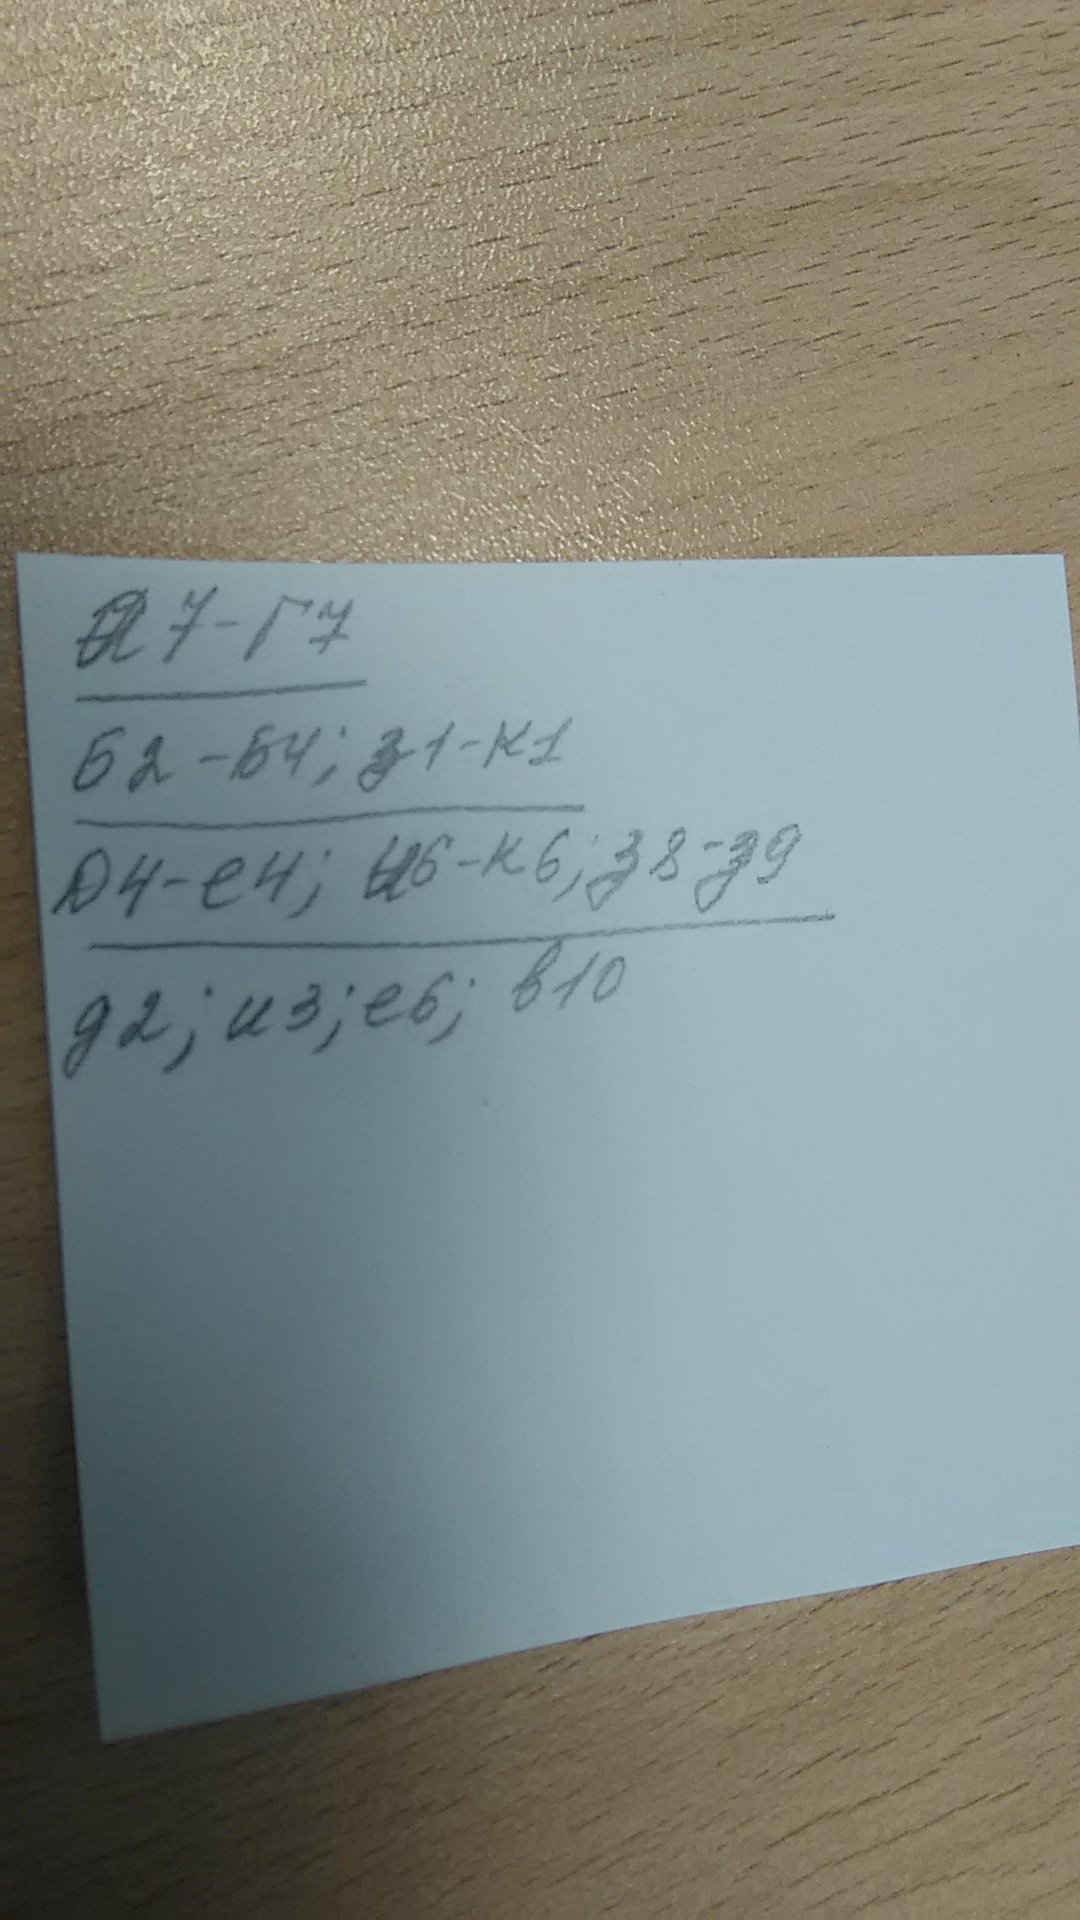 А7-Г7
Б2-Б4; з1-к1
Д4-е4; и6-к6; з8-з9
д2; и3; е6; в10